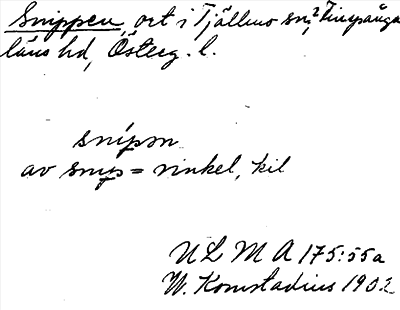 Snippen, ort i Tjällmo sn, Finspånga
läns hd, Österg. l.
snipən
av snip = vinkel, kil
ULMA 175:55a
W. Komstadius 1902